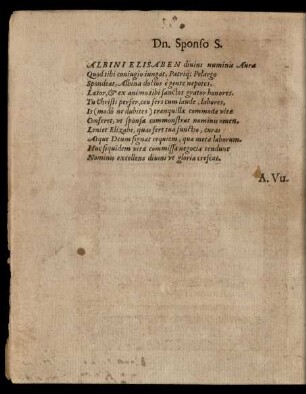 Dn. Sponso S.
ALBINI ELISABEN divini numinis Aura
Quod tibi coniugio iungat, Patriq; Pelargo
Spondeat, Albina dotius è gente nepotes.
Lætor, & ex animo tibi sanctos grator honores.
Tu Christi perfer, ceu fers cum laude, labores,
Is (modò ne dubites) tranquillæ commoda vitæ
Conferet, ut sponsæ commonstrat nominis omen.
Leniet Elizabe, quas fert tua functio, curas
Atque Deum signat requiem, qua meta laborum.
Huc siquidem vitæ commissa negocia tendunt
Nominis excellens divini ut gloria crescat.
A. Vu.